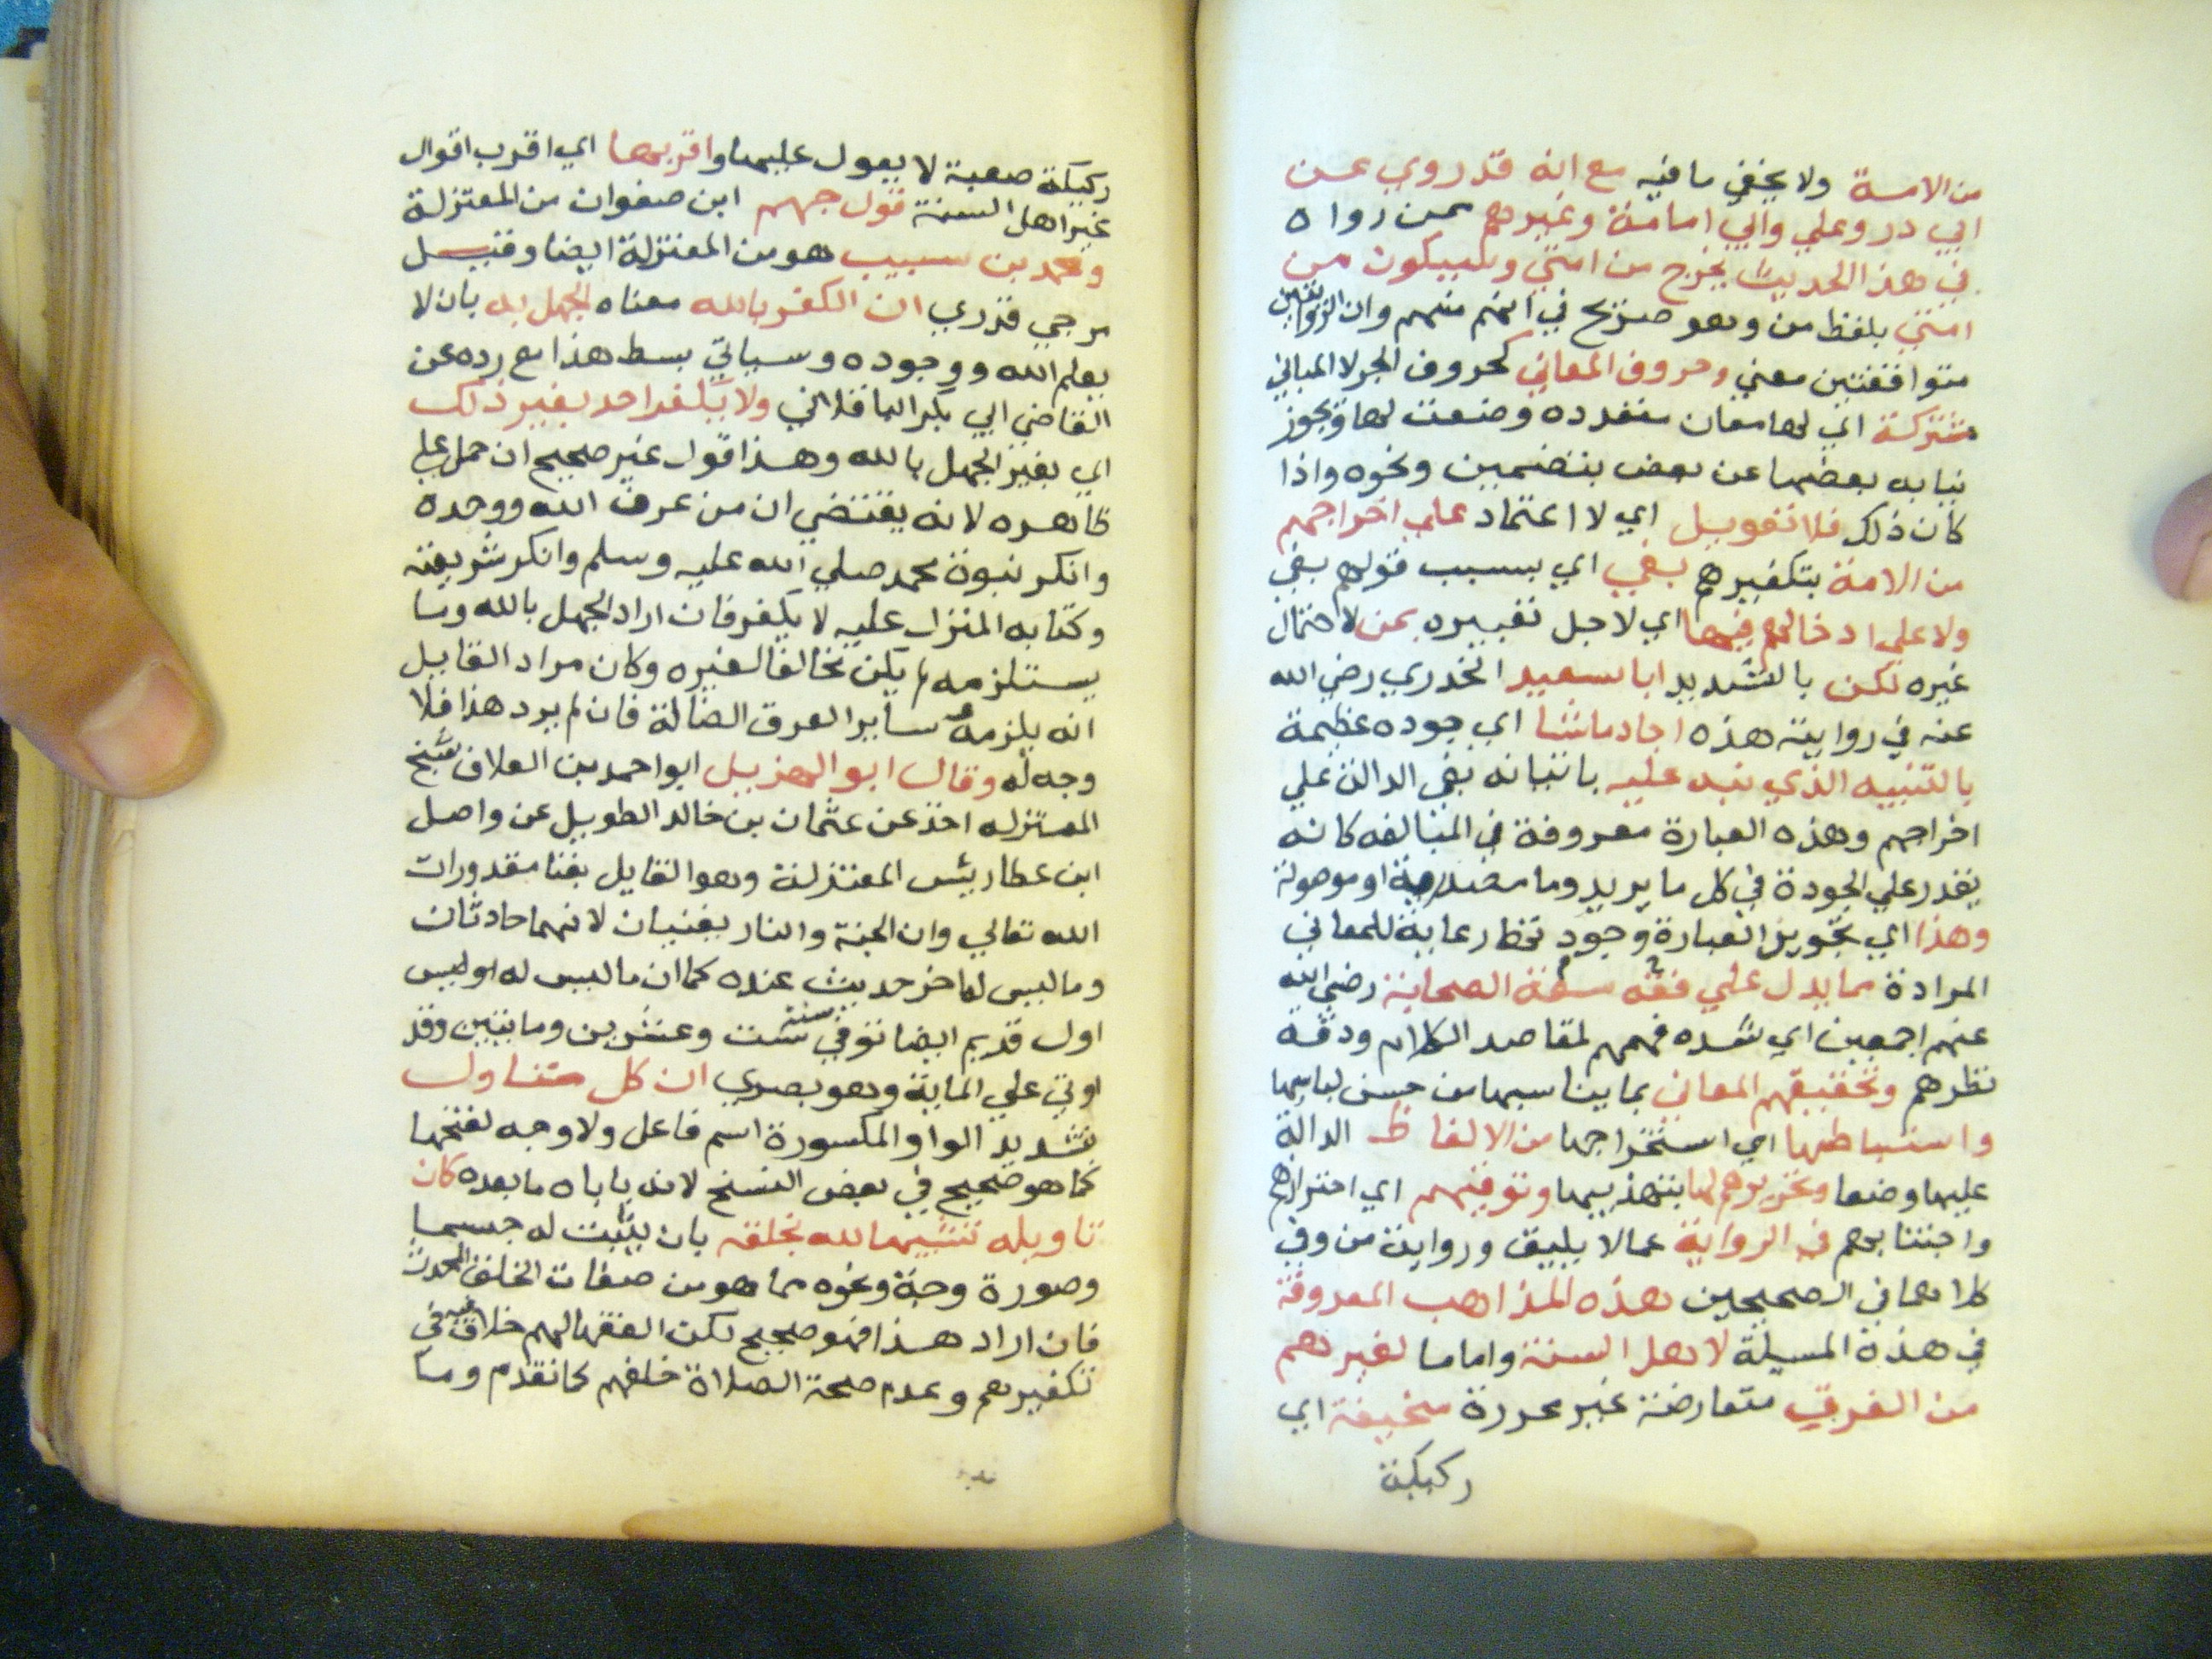 من الامة ولا يخفي ما فيه مع انه قد روي عن
ابي در وعلي وابي امامة وغيرهم ممن رواه
في هذا الحديث يخرج من امتي وسيكون من
امتي بلفظ من وهو صريح في انهم منهم وان الروايتين
متوافقتين معني وحروف المعاني كحروف الجر لا المباني
مشتركة اي لها معان متعدده وضعت لها ويجوز
نيابه بعضها عن بعض بتضمين ونحوه واذا
كان ذلك فلا تعويل اي لا اعتماد علي اخراجهم
من الامة بتكفيرهم بفي اي بسبب قولهم بفي
ولا علي ادخالهم فيها اي لاجل تعبيره بمن لاحتمال
غيره لكن بالتشديد ابا سعيد الخدري رضي الله
عنه في روايته هذه اجاد ماشا اي جوده عظيمة
بالتنبيه الذي نبه عليه باتيانه بفي الدالة علي
اخراجهم وهذه العبارة معروفة في المبالغه كانه
يقدر علي الجودة في كل ما يريد وما مصدرية او موصولة
وهذا اي تجويز العبارة وجود تحط رعاية للمعاني
المرادة مما يدل علي فقه سعة الصحابة رضي الله
عنهم اجمعين اي شده فهمهم لمقاصد الكلام ودقة
نظرهم وتحقيقهم المعاني بما يناسبها من حسن لباسها
واستنباطها اي استخراجها من الالفاظ الدالة
عليها وضعا وتحريرهم لها بتهذيبها وتوقيهم اي احترازهم
واجتنابهم في الرواية عما لا يليق ورواية من وفي
كلاهما في الصحيحين هذه المذاهب المعروفة
في هذه المسيلة لاهل السنة واما ما لغيرهم
من الفرق متعارضة غير محررة سخيفة اي
ركيكة
ركيكة صعبة لا يعول عليها واقربها اي اقرب اقوال
غير اهل السنة قول جهم ابن صفوان من المعتزلة
ومحمد بن سبيب هو من المعتزلة ايضا وقيل
مرجي قدري ان الكفر بالله معناه الجهل به بان لا
يعلم الله ووجوده وسياتي بسط هذا مع رده عن
القاضي ابي بكر الباقلاني ولا يكفر احد بغير ذلك
اي بغير الجهل بالله وهذا قول غير صحيح ان حمل علي
ظاهره لانه يقتضي ان من عرف الله ووحده
وانكر نبوة محمد صلي الله عليه وسلم وانكر شريعته
وكتابه المنزل عليه لا يكفر فان اراد الجهل بالله وما
يستلزمه لم يكن مخالفا لغيره وكان مراد القايل
انه يلزمه ساير الفرق الضالة فان لم يرد هذا فلا
وجه له وقال ابو الهذيل ابو احمد بن العلاف شيخ
المعتزله اخذ عن عثمان بن خالد الطويل عن واصل
ابن عطا رئيس المعتزلة وهو القايل بفنا مقدورات
الله تعالي وان الجنة والنار يفنيان لانهما حادثان
وما ليس له اخر حديث عنده كما ان ما ليس له اوليس
اول قديم ايضا توفي سنة ست وعشرين وما يتين وقد
اوفي علي الماية وهو بصري ان كل متاول
بتشديد الواو المكسورة اسم فاعل ولا وجه لفتحها
كما هو صحيح في بعض النسخ لانه ياباه ما بعده كان
تاويله تشبيها لله بخلقه بان يثبت له جسما
وصورة وجهة ونحوه مما هو من صفات الخلق المحدث
فان اراد هذا فهو صحيح لكن الفقها لهم خلاف فيه في
تكفيرهم وعدم صحة الصلاة خلفهم كما تقدم وما